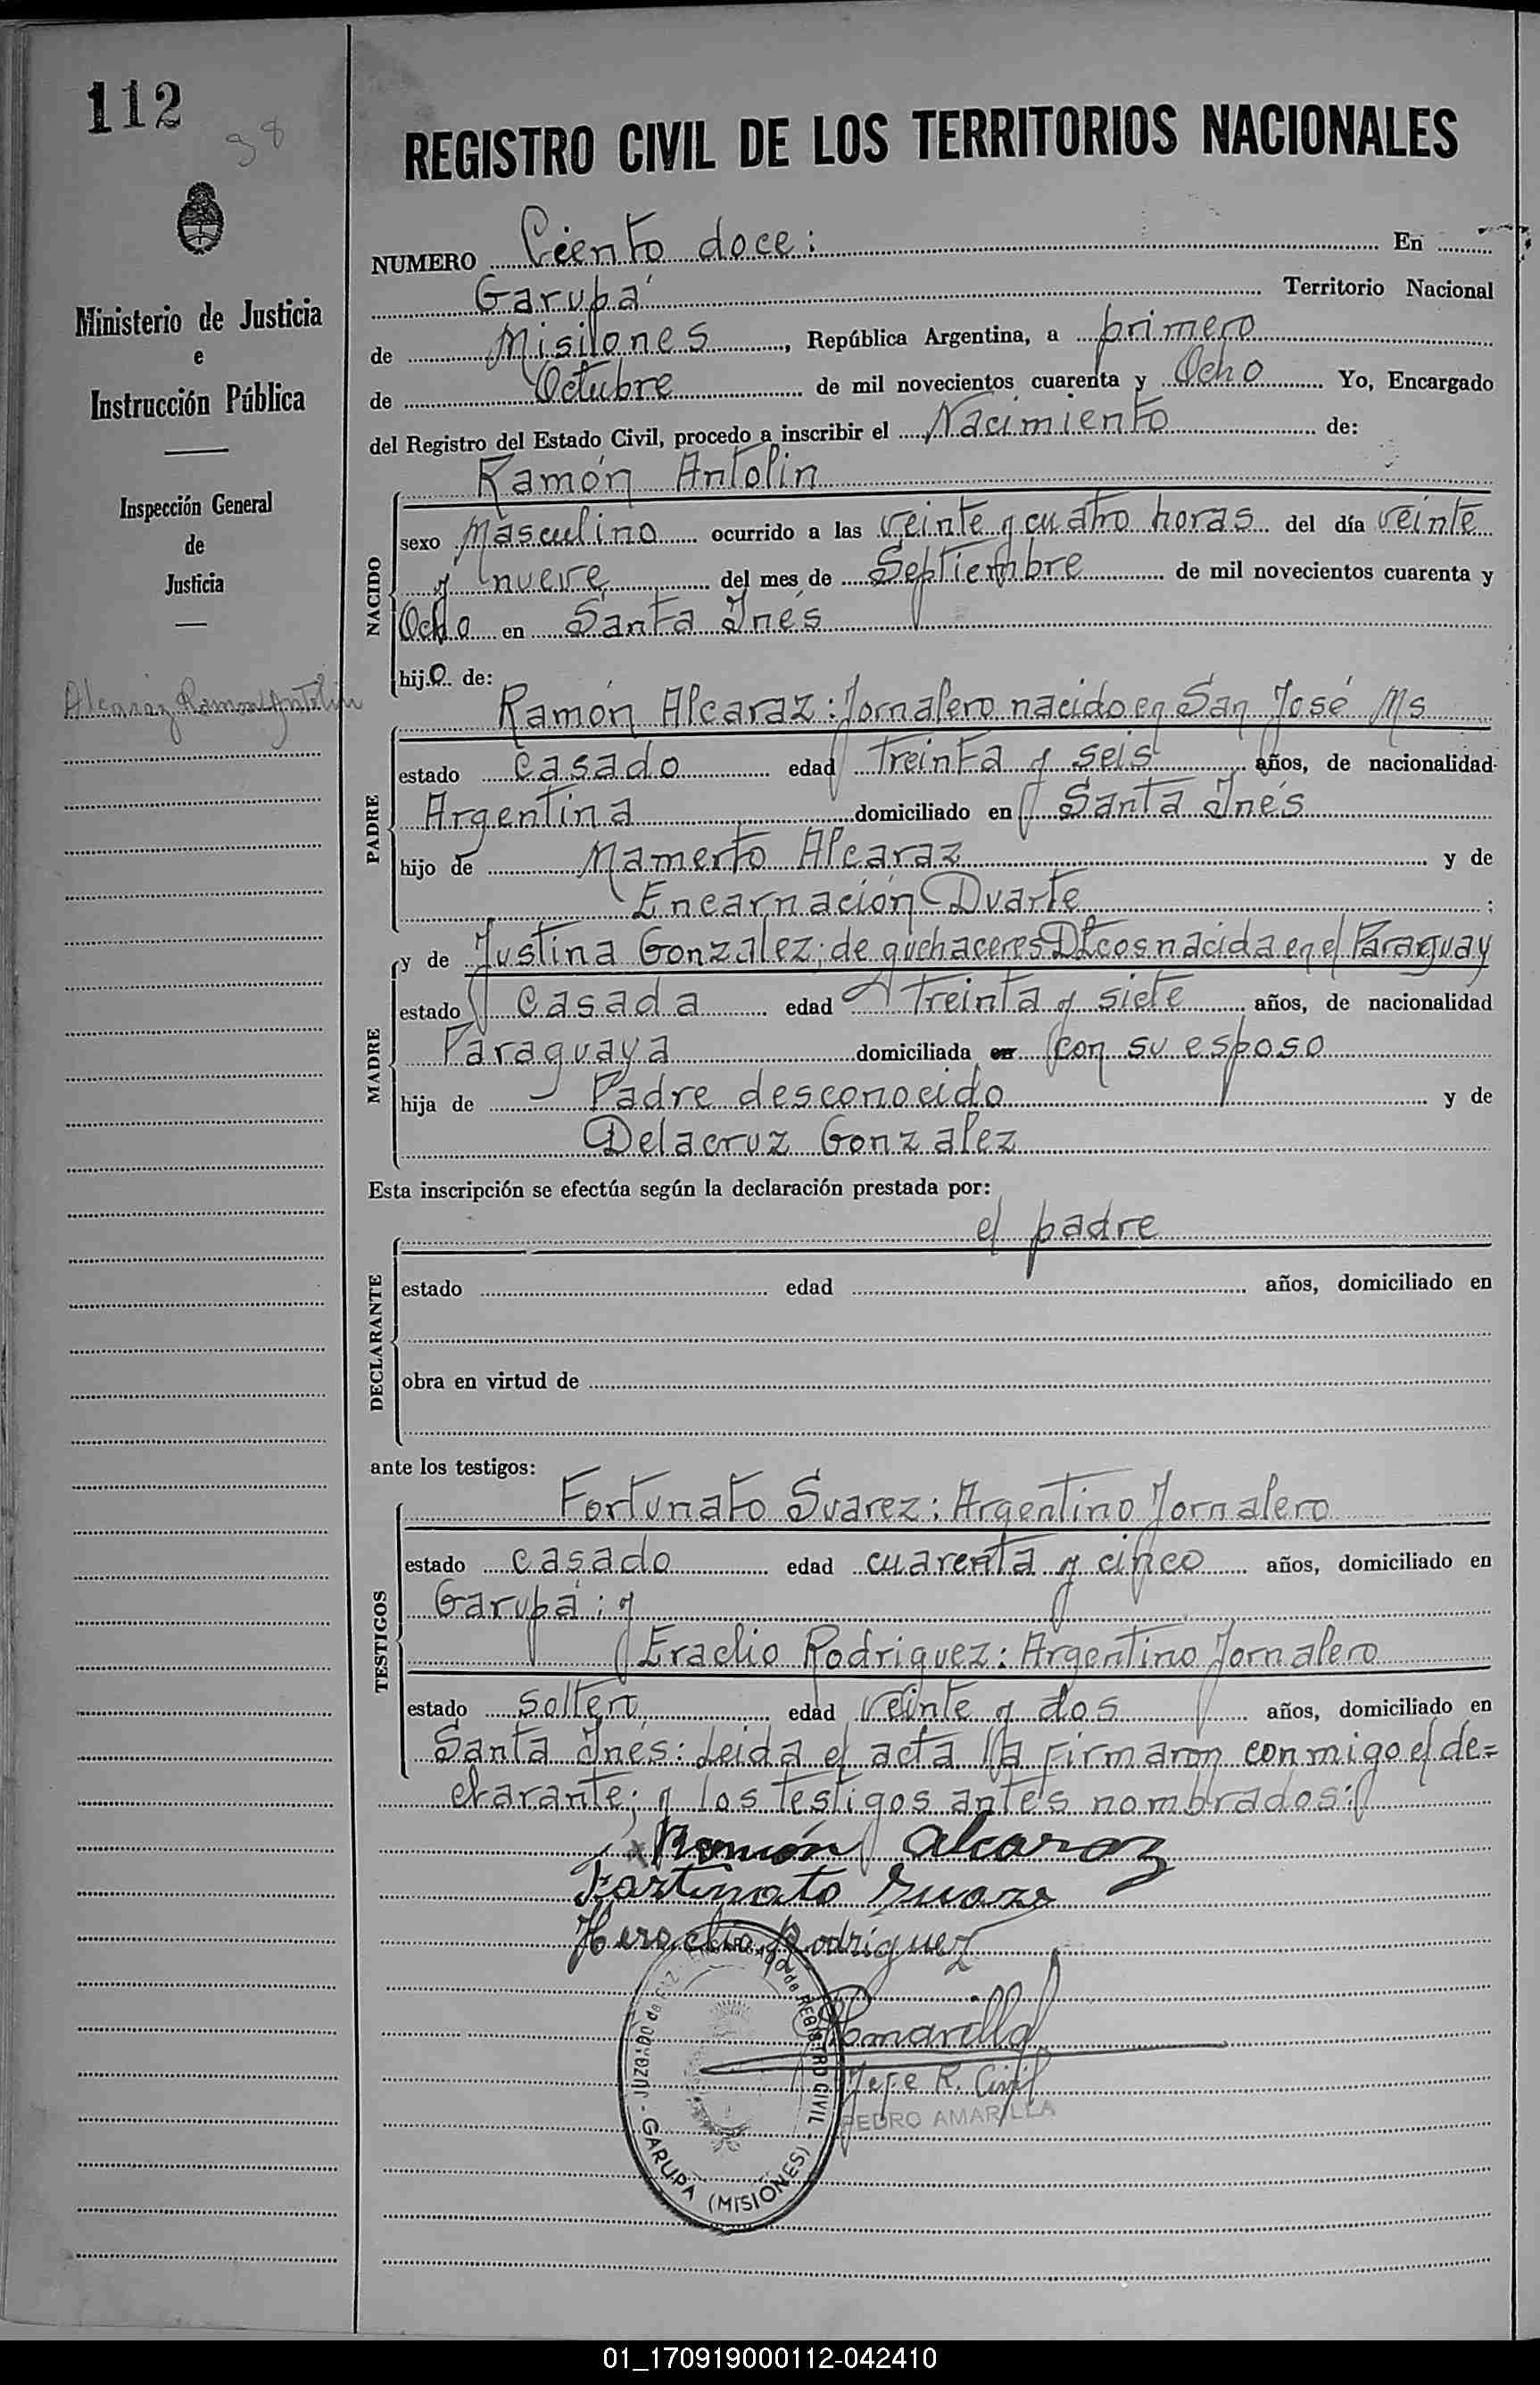 112
98
REGISTRO CIVIL DE LOS TERRITORIOS NACIONALES
Ministerio de Justicia
e
Instrucción Pública
Inspección General
de
Justicia
Alcaraz Ramon Antolin
NUMERO Ciento doce: En
Garupá Territorio Nacional
de Misiones, República Argentina, a primero
de Octubre de mil novecientos cuarenta y Ocho Yo, Encargado
del Registro del Estado Civil, procedo a inscribir el Nacimiento de:
NACIDO
Ramón Antolin
sexo Masculino ocurrido a las veinte y cuatro horas del día veinte
y nueve del mes de Septiembre de mil novecientos cuarenta y
Ocho en Santa Inés
hijo de:
PADRE
Ramón Alcaraz: Jornalero nacido en San José Ms
estado casado edad treinta y seis años, de nacionalidad
Argentina domiciliado en Santa Inés
hijo de Mamerto Alcaraz y de
Encarnación Duarte ;
MADRE
y de Justina Gonzalez; de quehaceres Dtcos nacida en el Paraguay
estado casada edad treinta y siete años, de nacionalidad
Paraguaya domiciliada en con su esposo
hija de Padre desconocido y de
Delacruz Gonzalez
Esta inscripción se efectúa según la declaración prestada por:
DECLARANTE
el padre
estado edad años, domiciliado en
obra en virtud de
ante los testigos:
TESTIGOS
Fortunato Suarez: Argentino Jornalero
estado casado edad cuarenta y cinco años, domiciliado en
Garupá: y
Eraclio Rodriguez: Argentino Jornalero
estado soltero edad veinte y dos años, domiciliado en
Santa Inés: Leida el acta la firmaron conmigo el de=
clarante; y los testigos antes nombrados:
x Ramón alcaraz
Fortunato Suarez
Heraclio Rodriguez
PAmarilla
Jefe R. Civil
PEDRO AMARILLA
JUZGADO de PAZ - ENCARGADO de REGISTRO CIVIL - GARUPA (MISIONES)
01_170919000112-042410